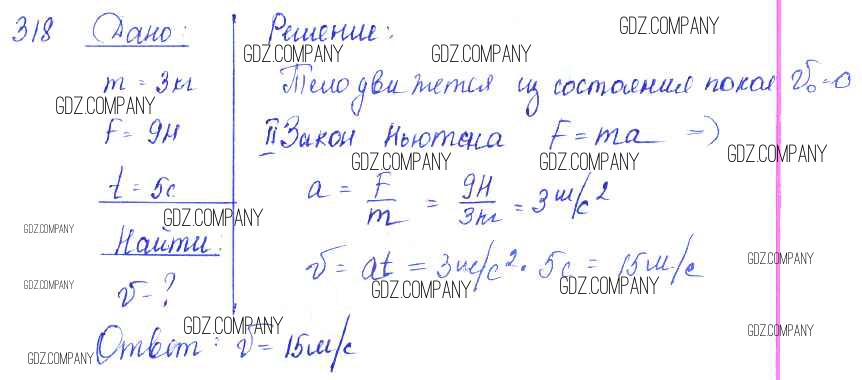 318 Дано: Решение:
GDZ.COMPANY
GDZ.COMPANY GDZ.COMPANY
m = 3кг Тело движется из состояния покоя v₀=0
GDZ.COMPANY
F = 9Н II Закон Ньютона F = ma =>
GDZ.COMPANY GDZ.COMPANY GDZ.COMPANY
t = 5с a = F/m = 9Н/3кг = 3м/с²
GDZ.COMPANY
GDZ.COMPANY
Найти:
v = at = 3м/с² · 5с = 15м/с
GDZ.COMPANY
GDZ.COMPANY GDZ.COMPANY GDZ.COMPANY
v - ?
GDZ.COMPANY GDZ.COMPANY
Ответ: v = 15м/с
GDZ.COMPANY